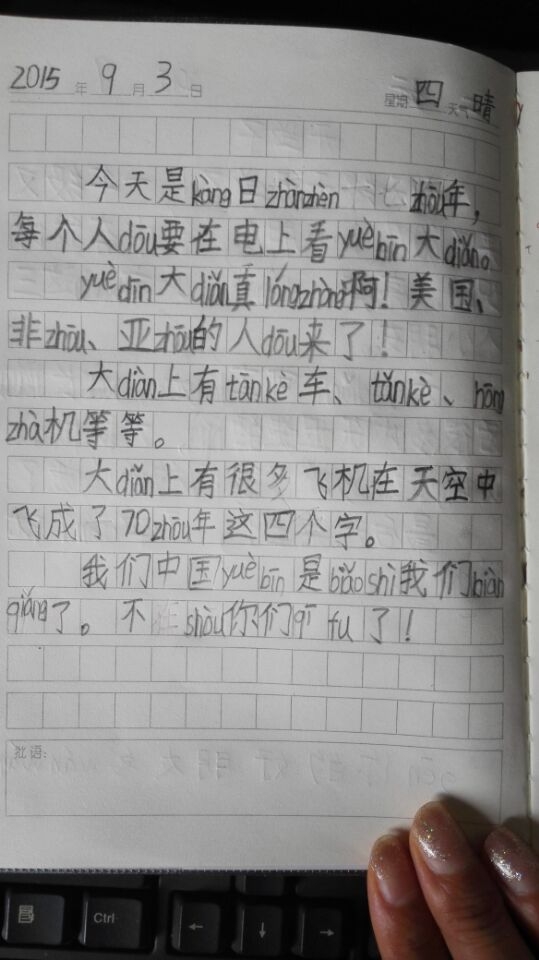 2015年9月3日 星期四 天气晴
今天是kàng日zhànzhèn zhōu年，
每个人dōu要在电上看yuèbīn大diǎn。
yuèdīn大diǎn真lóngzhòng啊！美国、
非zhōu、亚zhōu的人dōu来了！
大diàn上有tānkè车、tǎnkè、hōng
zhà机等等。
大diǎn上有很多飞机在天空中
飞成了70zhōu年这四个字。
我们中国yuèbīn是biǎoshì我们biàn
qiáng了。不 shòu你们qī fu了！
批语：
Ctrl